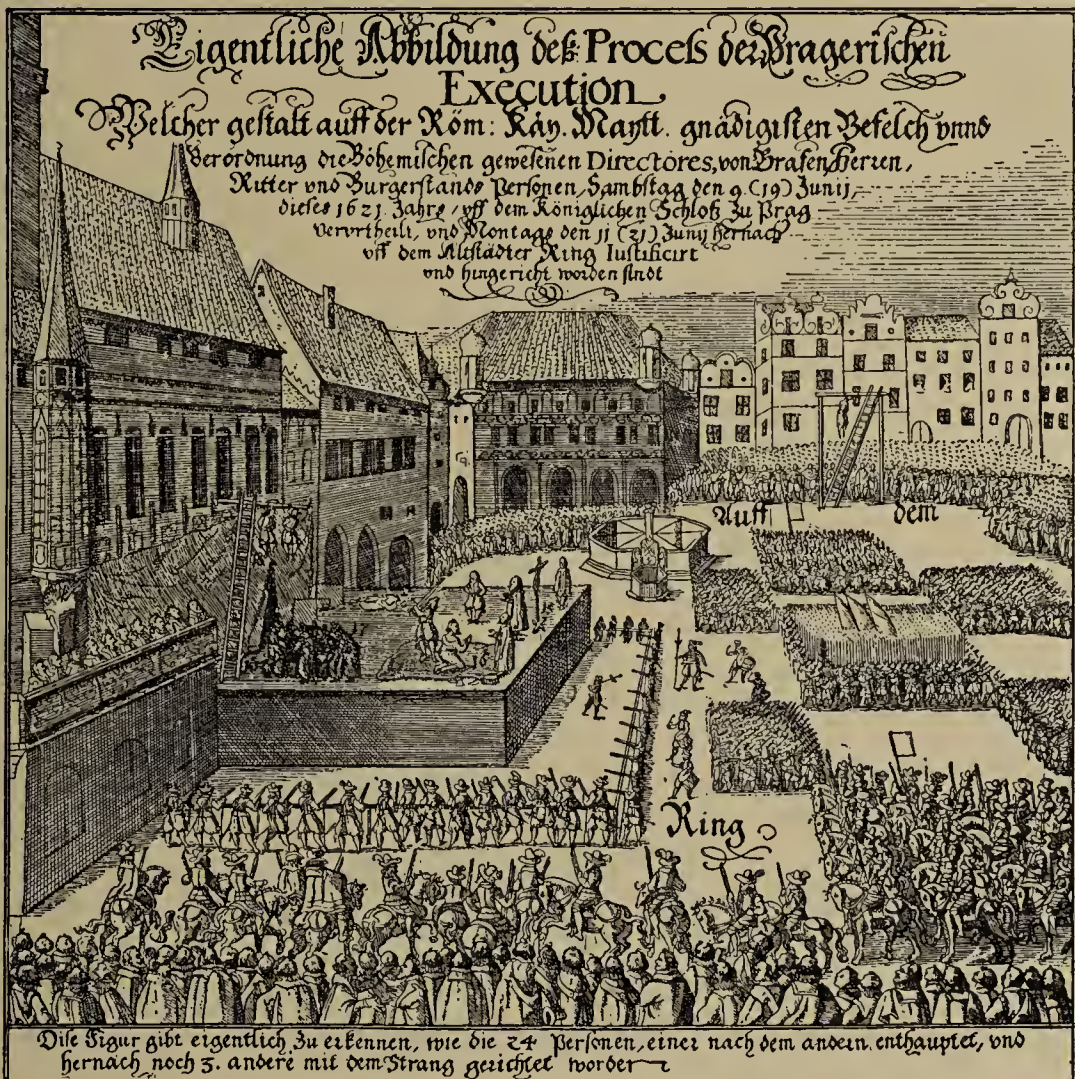 Eigentliche Abbildung deß Process der Pragerischen
Execution
Welcher gestalt auff der Röm: Käy. Maytt. gnädigisten Befelch vnnd
Verordnung die Böhemischen gewesenen Directores, von Grafen, Herren,
Ritter vnd Burgerstands Personen, Sambstag den 9. (19) Junij,
dieses 1621. Jahrs, vff dem Königlichen Schloß zu Prag
Vervrtheilt, vnd Montags den 11 (21) Junij hernach
vff dem Altstädter Ring Iustificirt
vnd hingericht worden sindt
Auff dem
Ring
Dise Figur gibt eigentlich zu erkennen, wie die 24 Personen, einer nach dem andern, enthauptet, vnd
hernach noch 3. andere mit dem Strang gerichtet worden